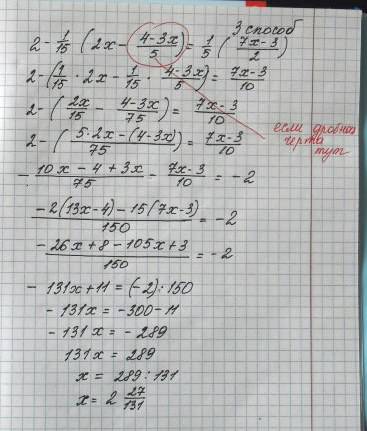 3 способ
2 - 1/15 (2x - (4-3x)/5) = 1/5 ((7x-3)/2)
2 - (1/15 · 2x - 1/15 · (4-3x)/5) = (7x-3)/10
2 - (2x/15 - (4-3x)/75) = (7x-3)/10
если дробная
черта
тут
2 - ((5·2x-(4-3x))/75) = (7x-3)/10
- (10x-4+3x)/75 - (7x-3)/10 = -2
(-2(13x-4)-15(7x-3))/150 = -2
(-26x+8-105x+3)/150 = -2
- 131x+11 = (-2)·150
- 131x = -300-11
- 131x = - 289
131x = 289
x = 289 : 131
x = 2 27/131